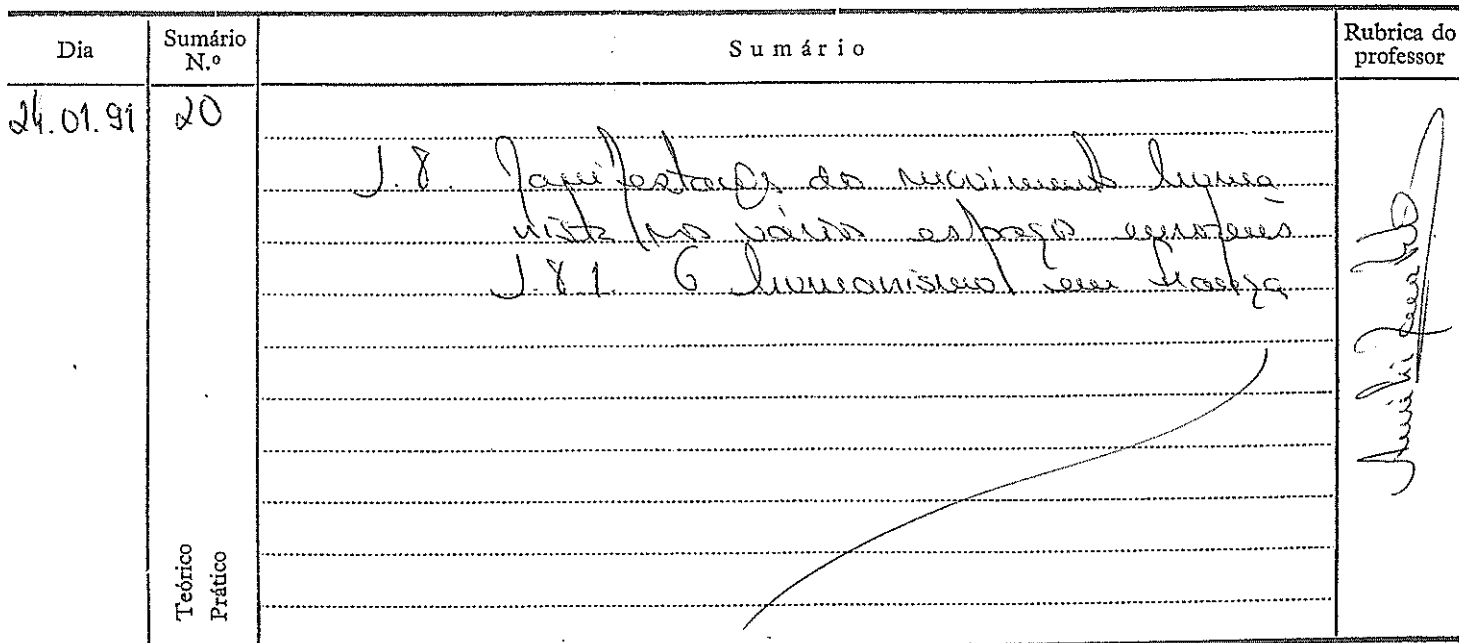 Dia
Sumário N.º
Sumário
Rubrica do professor
24.01.91
20
J.8. Manifestações do movimento huma
nista nos vários espaços europeus
J.8.1. O humanismo em França
Teórico
Prático